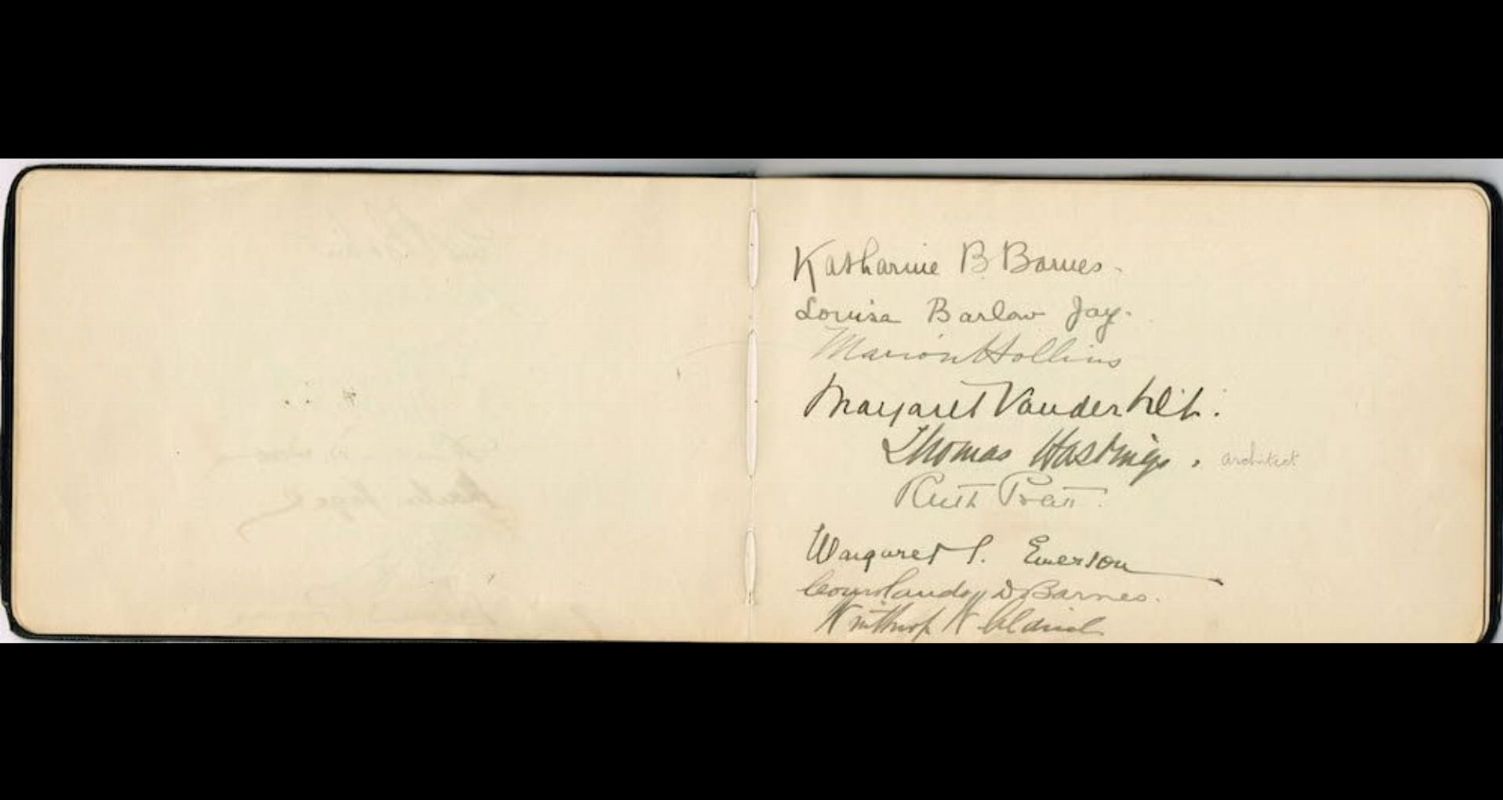 Katharine B. Barnes.
Louisa Barlow Jay.
Marion Hollins
Margaret Vanderbilt.
Thomas Hastings. architect
Ruth Pratt.
Margaret Emerson
Courtlandt D. Barnes.
Winthrop W Aldrich